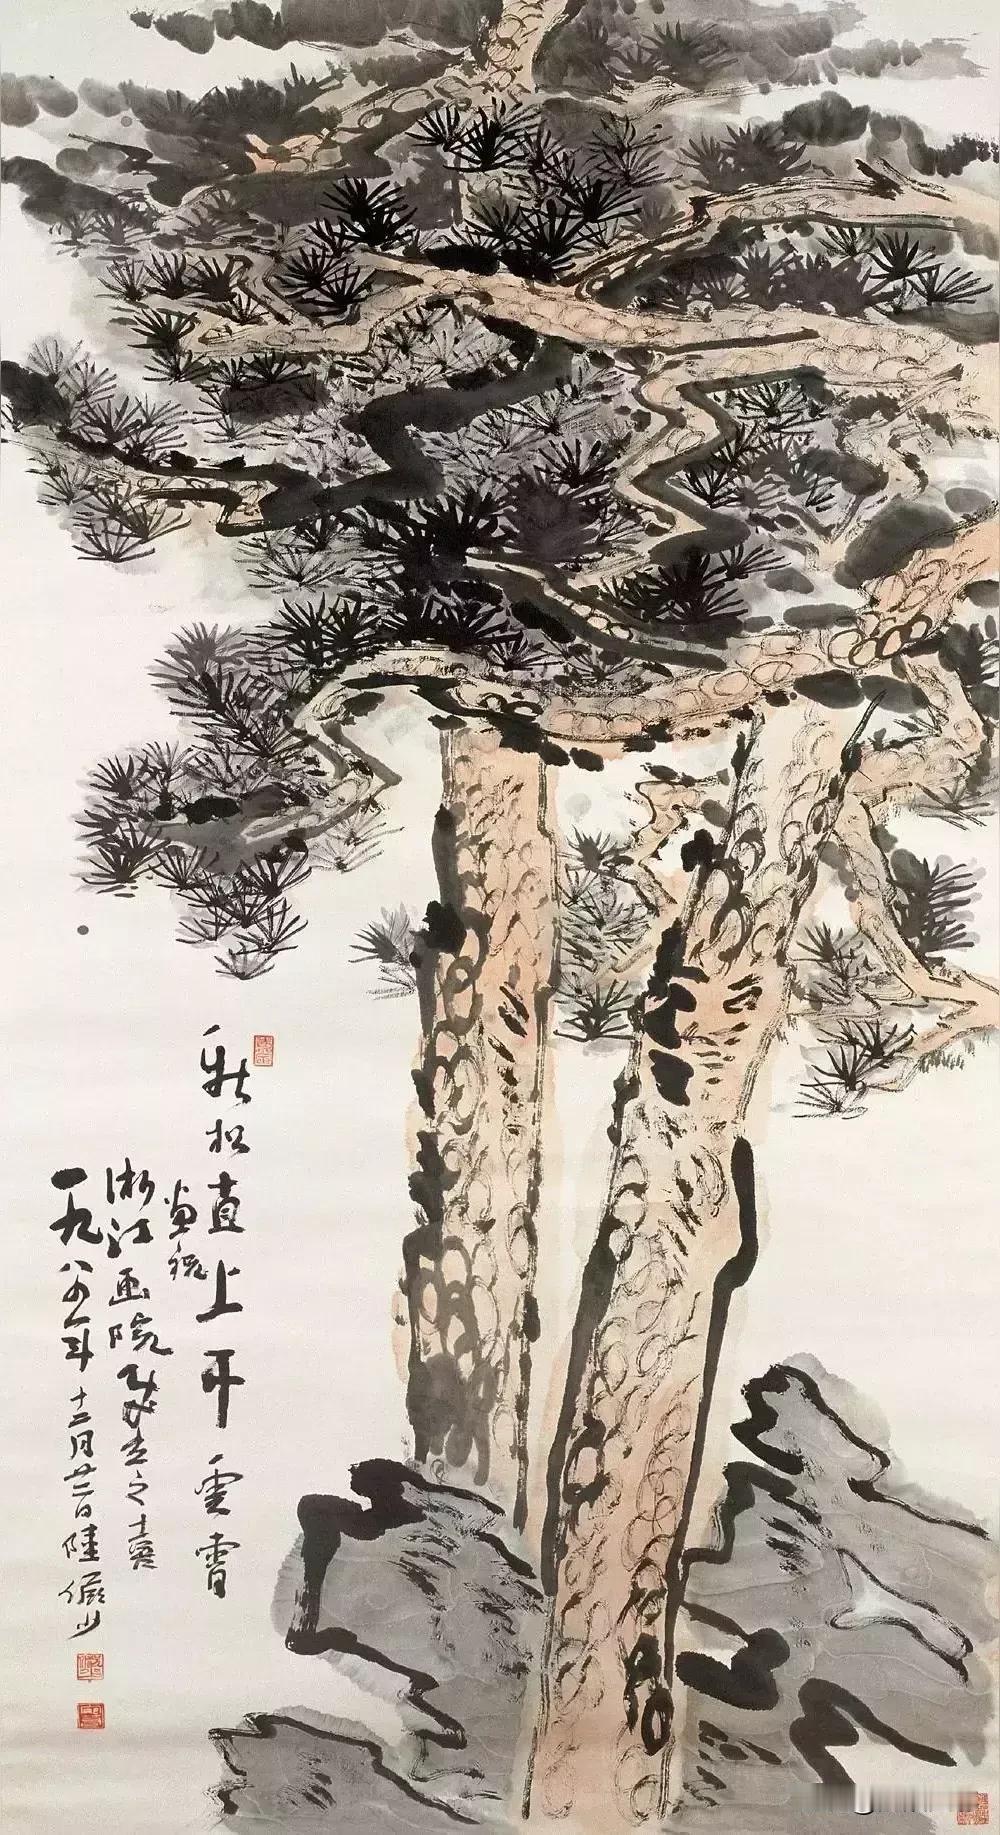 新松直上干雲霄
畫祝
浙江画院成立之喜
一九八四年十二月廿二日陸儼少